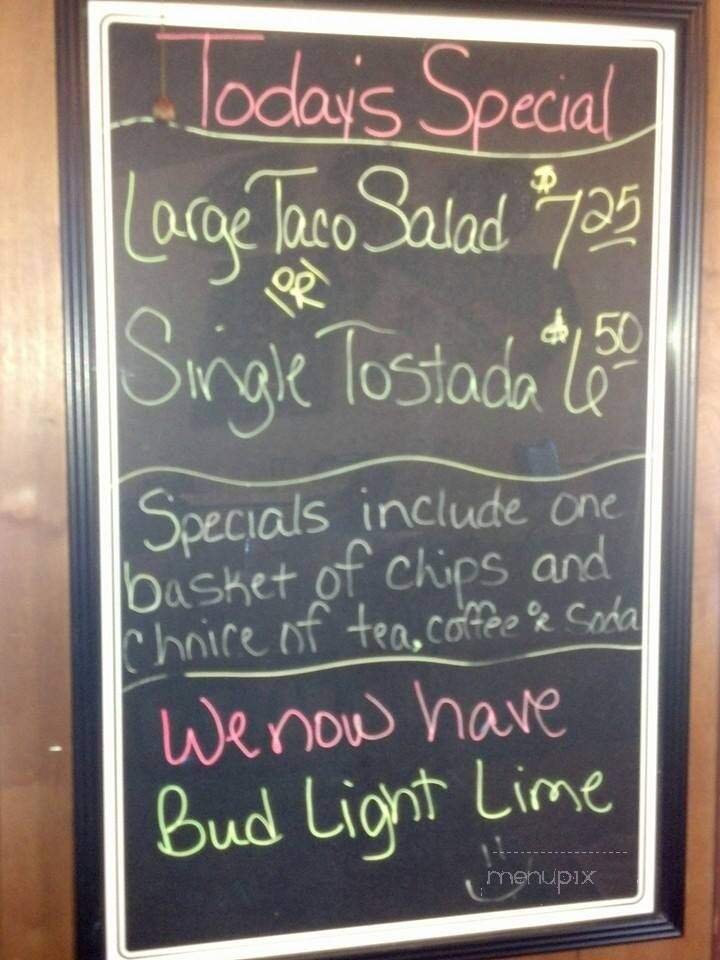 Today's Special
Large Taco Salad $7.25
OR
Single Tostada $6.50
Specials include one
basket of chips and
choice of tea, coffee or soda
We now have
Bud Light Lime
menupix